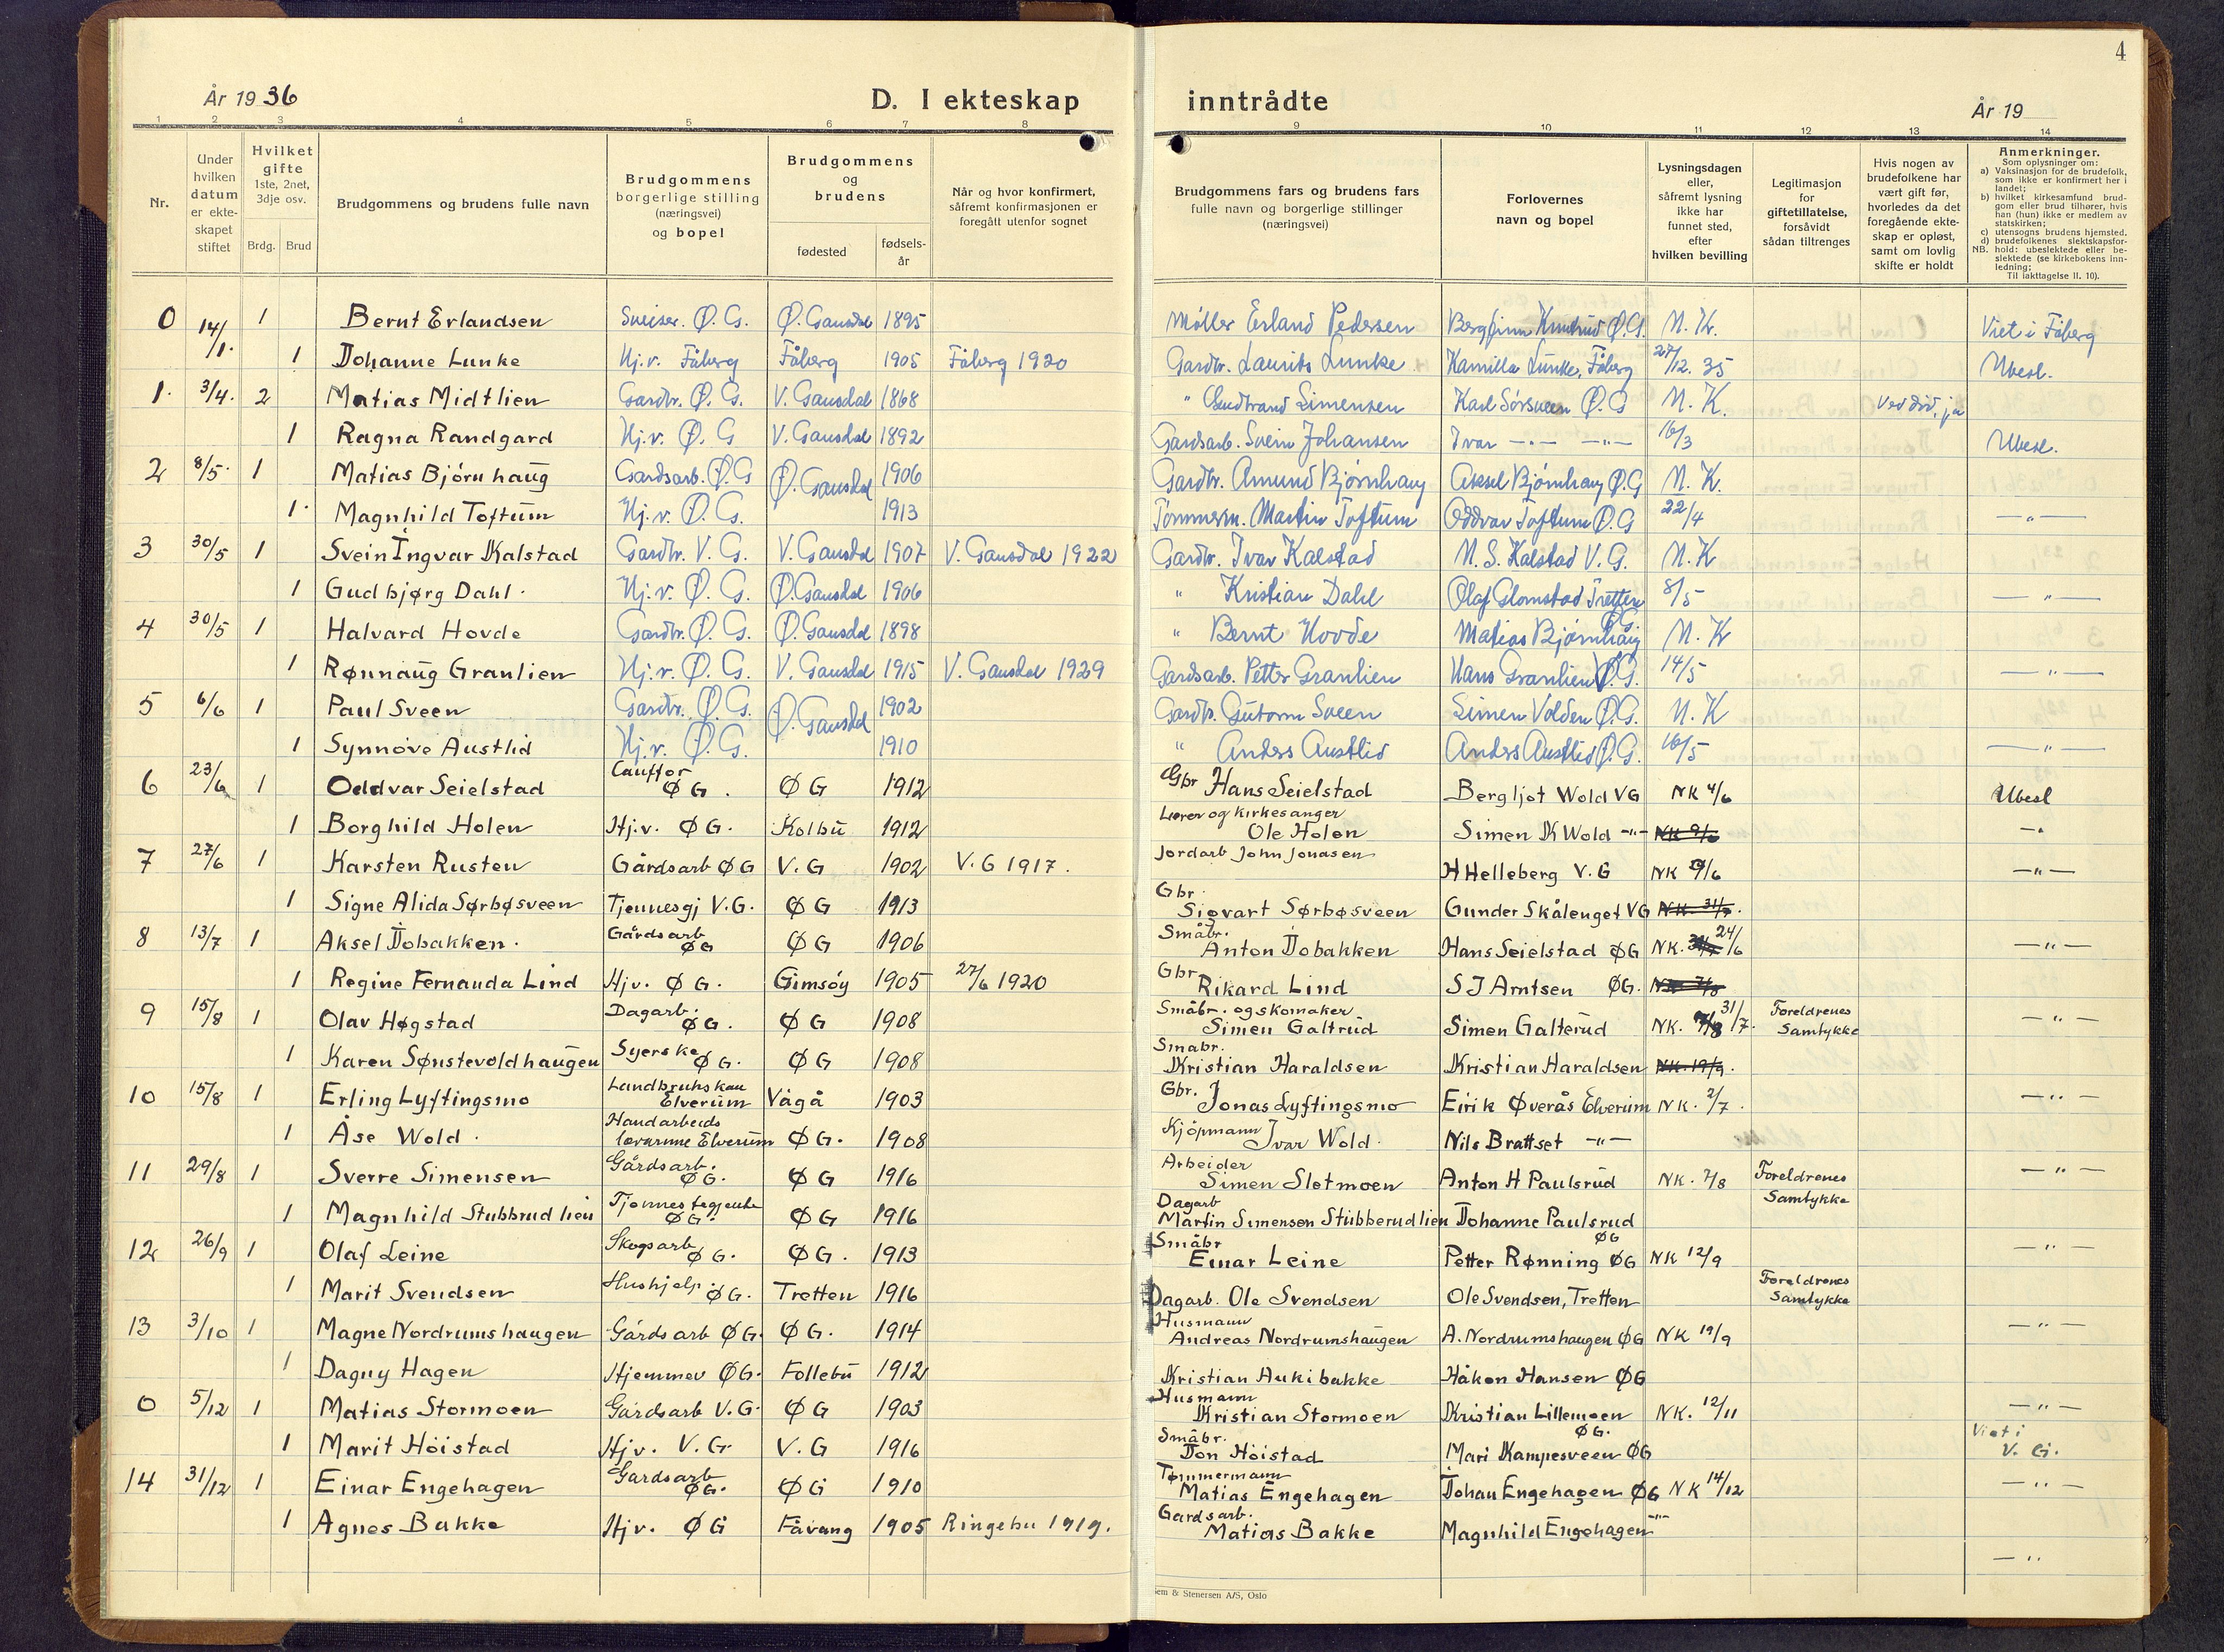 4
År 1936
D. I ekteskap
inntrådte
År 19
1 2 3 4 5 6 7 8
9 10 11 12 13 14
Nr.
Under hvilken datum er ekteskapet stiftet
Hvilket gifte 1ste, 2net, 3dje osv.
Brdg. Brud
Brudgommens og brudens fulle navn
Brudgommens borgerlige stilling (næringsvei) og bopel
Brudgommens og brudens
fødested
fødselsår
Når og hvor konfirmert, såfremt konfirmasjonen er foregått utenfor sognet
Brudgommens fars og brudens fars fulle navn og borgerlige stillinger (næringsvei)
Forlovernes navn og bopel
Lysningsdagen eller, såfremt lysning ikke har funnet sted, efter hvilken bevilling
Legitimasjon for giftetillatelse, forsåvidt sådan tiltrenges
Hvis nogen av brudefolkene har vært gift før, hvorledes da det foregående ekteskap er opløst, samt om lovlig skifte er holdt
Anmerkninger.
Som oplysninger om:
a) Vaksinasjon for de brudefolk, som ikke er konfirmert her i landet;
b) hvilket kirkesamfund brudgom eller brud tilhører, hvis han (hun) ikke er medlem av statskirken;
c) utensogns brudens hjemsted.
d) brudefolkenes slektskapsforhold: ubeslektede eller beslektede (se kirkebokens innledning;
NB.
Til iakttagelse II. 10).
0 14/1. 1 Bernt Erlandsen Sveiser. Ø. G. Ø. Gausdal 1895 Møller Erland Pedersen Bergfinn Knutrud Ø.G. N. K. Viet i Fåberg
1 Johanne Lunke Hj.v. Fåberg Fåberg 1905 Fåberg 1920 Gardbr. Laurits Lunke Kamilla Lunke, Fåberg 27/12. 35 Ubesl.
1. 3/4. 2 Matias Midtlien Gardbr. Ø. G. V. Gausdal 1868 " Gudbrand Simensen Karl Sørsveen Ø. G N. K. Ved død, ja
1 Ragna Randgard Hj.v. Ø. G V. Gausdal 1892 Gardsarb. Svein Johansen Ivar —"— —"— 16/3 Ubesl.
2 8/5. 1 Matias Bjørnhaug Gardsarb. Ø.G Ø. Gausdal 1906 Gardbr. Amund Bjørnhaug Aksel Bjørnhaug Ø.G N. K.
1. Magnhild Toftum Hj.v. Ø. G. 1913 Tømmerm. Martin Toftum Oddvar Toftum Ø.G 22/4 —"—
3 30/5 1 Svein Ingvar Kalstad Gardbr. V. G. V. Gausdal 1907 V. Gausdal 1922 Gardbr. Ivar Kalstad N. S. Kalstad V. G. N. K
1 Gudbjørg Dahl. Hj.v. Ø. G. Ø. Gausdal 1906 " Kristian Dahl Olaf Glomstad Tretten 8/5 —"—
4 30/5 1 Halvard Hovde Gardbr. Ø. G. Ø. Gausdal 1898 " Bernt Hovde Matias Bjørnhaug Ø.G N. K
1 Rønnaug Granlien Hj.v. Ø. G. V. Gausdal 1915 V. Gausdal 1929 Gardsarb. Petter Granlien Hans Granlien Ø.G. 14/5 —"—
5 6/6 1 Paul Sveen Gardbr. Ø. G. Ø. Gausdal 1902 Gardbr. Gutorm Sveen Simen Volden Ø.G. N. K
1 Synnøve Austlid Hj.v. Ø. G. 1910 " Anders Austlid Anders Austlid Ø.G. 16/5 —"—
6 23/6 1 Oddvar Seielstad ØG. ØG 1912 Gbr Hans Seielstad Bergljot Wold VG NK 4/6 Ubesl
1 Borghild Holen Hj.v. ØG. Kolbu 1912 Lærer og kirkesanger Ole Holen Simen K Wold —"— NK 9/6 —"
7 27/6 1 Karsten Rusten Gårdsarb ØG V.G 1902 V.G 1917. Jordarb John Jonasen H Helleberg V.G NK 9/6 —"—
1 Signe Alida Sørbøsveen Tjenestegj V.G. ØG 1913 Gbr. Sigvart Sørbøsveen Gunder Skålenget VG
8 13/7 1 Aksel Jobakken. Gårdsarb ØG ØG 1906 Småbr. Anton Jobakken Hans Seielstad ØG NK. 24/6 —"—
1 Regine Fernanda Lind Hjv. ØG. Gimsøy 1905 27/6 1920 Gbr Rikard Lind S J Arntsen ØG.
9 15/8 1 Olav Høgstad Dagarb. ØG. ØG 1908 Småbr. og skomaker Simen Galtrud Simen Galterud NK. 31/7. Foreldrenes Samtykke —"—
1 Karen Sønstevoldhaugen Syerske ØG. ØG 1908 Småbr. Kristian Haraldsen Kristian Haraldsen NK. 19/9.
10 15/8 1 Erling Lyftingsmo Elverum Vågå 1903 Gbr. Jonas Lyftingsmo Eirik Øverås Elverum NK. 2/7. —"—
1 Åse Wold. Handarbeids lærarinne Elverum ØG. 1908 Kjøpmann Ivar Wold. Nils Brattset —"—
11 29/8 1 Sverre Simensen Gårdsarb. ØG. ØG 1916 Arbeider Simen Sletmoen Anton H Paulsrud NK. 7/8 Foreldrenes Samtykke —"—
1 Magnhild Stubbrudlien Tjenestegjente ØG. ØG 1916 Dagarb Martin Simensen Stubberudlien Johanne Paulsrud ØG
12 26/9 1 Olaf Leine Skogsarb ØG. ØG. 1913 Småbr Einar Leine Petter Rønning ØG NK 12/9 —"—
1 Marit Svendsen Hushjelp ØG. Tretten 1916 Dagarb. Ole Svendsen Ole Svendsen, Tretten Foreldrenes Samtykke
13 3/10 1 Magne Nordrumshaugen Gårdsarb ØG. ØG. 1914 Husmann Andreas Nordrumshaugen A. Nordrumshaugen ØG NK 19/9 —"—
1 Dagny Hagen Hjemmev ØG. Follebu 1912 Kristian Aukibakke Håkon Hansen ØG
0 5/12 1 Matias Stormoen Gårdsarb V.G. ØG 1903 Husmann Kristian Stormoen Kristian Lillemoen ØG. NK. 12/11 —"—
1 Marit Höistad Hjv. V.G. V.G 1916 Småbr. Jon Höistad Mari Kampesveen ØG Viet i V. G.
14 31/12 1 Einar Engehagen Gardsarb ØG. ØG 1910 Tømmermann Matias Engehagen Johan Engehagen ØG NK 14/12 —"—
1 Agnes Bakke Hjv. ØG Fåvang 1905 Ringebu 1919. Gardsarb. Matias Bakke Magnhild Engehagen —"—
—"
Sem & Stenersen A/S, Oslo